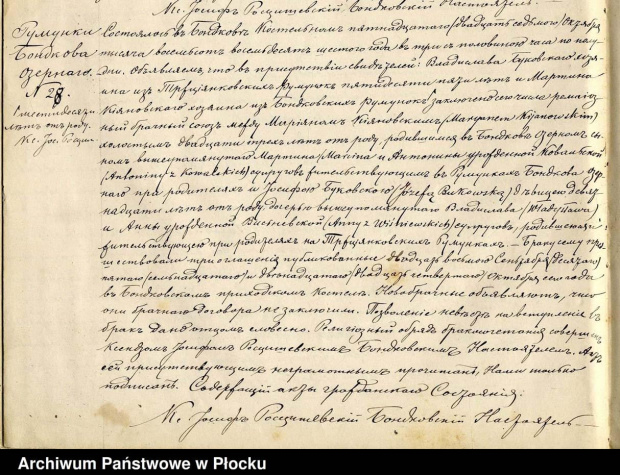 Кс. Іосифъ Росцишевскій Бондковскій Настоятель.
Румунки
Бондкова
озернаго.
N 28.
лѣтъ отъ роду.
Кс. Іос. Росциш.
Состоялось въ Бондковѣ Костельномъ пятнадцатаго /двадцать седьмаго/ Октября
тысяча восемьсотъ восемьдесятъ шестого года въ три съ половиною часа по полу-
дни. Объявляемъ, что въ присутствіи свидѣтелей: Владислава Буковскаго хозя-
ина изъ Трцянковскихъ Румунокъ пятидесяти лѣтъ и Мартина
Кіяновскаго хозяина изъ Бондковскихъ румунокъ заключенъ сего числа религіоз-
ный брачный союзъ между Маріяномъ Кіяновскимъ /Maryanem Kijanowskim/
холостымъ двадцати трехъ лѣтъ отъ роду, родившимся въ Бондковѣ озерномъ сы-
номъ вышеупомянутаго Мартина /Marcina/ и Антонины урожденной Ковальской
/Antoniny z Kowalskich/ супруговъ жительствующимъ въ Румункахъ Бондкова озер-
наго при родителяхъ и Іосефою Буковскою /Józefą Bukowską/ дѣвицею девят-
надцати лѣтъ отъ роду дочерью вышеупомянутаго Владислава /Władysława/
и Анны урожденной Висневской /Anny z Wiśniewskich/ супруговъ, родившеюся и
жительствующею при родителяхъ на Трцянковскихъ Румункахъ. Браку сему пред-
шествовали три оглашенія публикованныя двадцать восьмаго Сентября /десятаго/
пятаго /семьнадцатаго/ и двенадцатаго /двадцать четвертаго/ Октября сего года
въ Бондковскомъ приходскомъ костелѣ. Новобрачные объявляютъ, что
они брачнаго договора не заключили. Позволеніе невѣстѣ на вступленіе въ
бракъ дано отцомъ словесно. Религіозный обрядъ бракосочетанія совершенъ
Ксендзомъ Іосифомъ Росцишевскимъ Бондковскимъ Настоятелемъ. Актъ
сей присутствующимъ неграмотнымъ прочитанъ, Нами только
подписанъ. Содержащій акты гражданскаго Состоянія:
Кс. Іосифъ Росцишевскій Бондковскій Настоятель
Archiwum Państwowe w Płocku